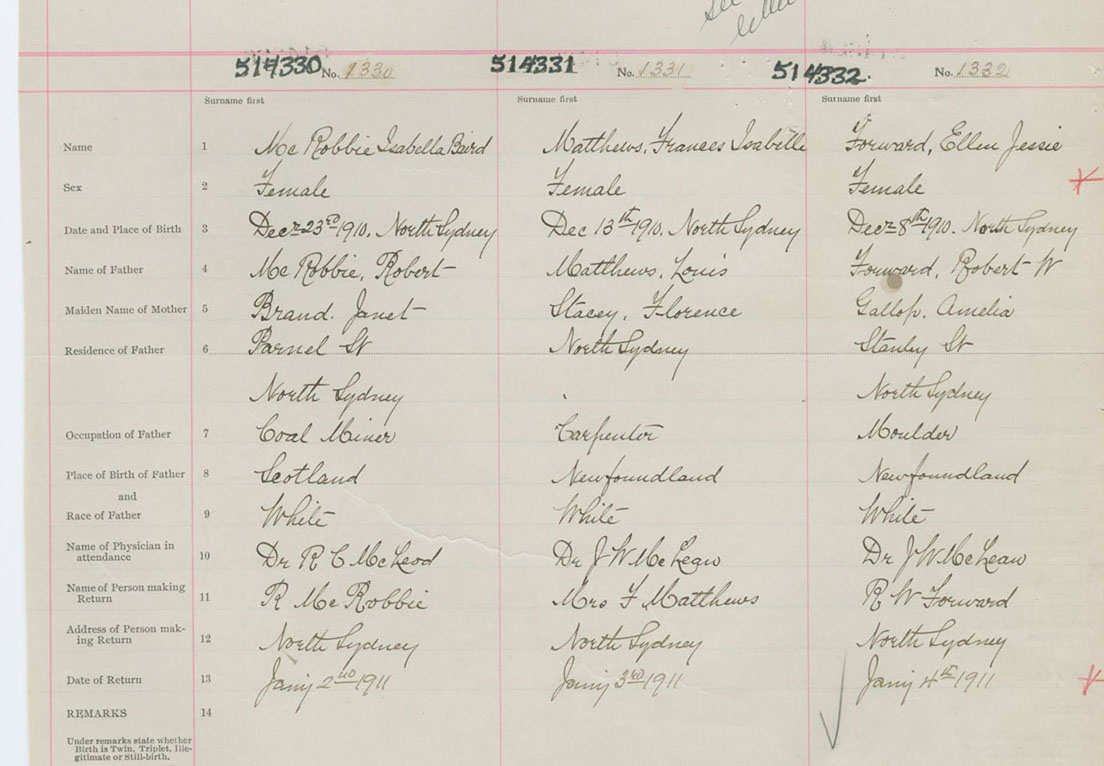 see
letter
514330 No. 1330 514331 No. 1331 514332. No. 1332
Surname first Surname first Surname first
Name 1 Mc Robbie Isabella Baird Matthews, Frances Isabelle Forward, Ellen Jessie
Sex 2 Female Female Female
Date and Place of Birth 3 Decr 23rd 1910. North Sydney Dec 13th 1910. North Sydney Decr 8th 1910. North Sydney
Name of Father 4 Mc Robbie, Robert Matthews, Louis Forward, Robert W
Maiden Name of Mother 5 Brand. Janet Stacey, Florence Gallop. Amelia
Residence of Father 6 Parnel St North Sydney Stanley St
North Sydney North Sydney
Occupation of Father 7 Coal Miner Carpenter Moulder
Place of Birth of Father 8 Scotland Newfoundland Newfoundland
and
Race of Father 9 White White White
Name of Physician in
attendance 10 Dr R C McLeod Dr J W McLean Dr J W McLean
Name of Person making
Return 11 R Mc Robbie Mrs F Matthews R W Forward
Address of Person mak-
ing Return 12 North Sydney North Sydney North Sydney
Date of Return 13 Jany 2nd 1911 Jany 3rd 1911 Jany 4th 1911
REMARKS 14
Under remarks state whether
Birth is Twin, Triplet, Ille-
gitimate or Still-birth.